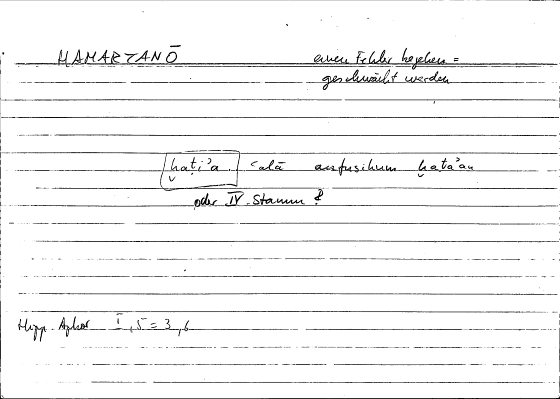 HAMARTANŌ
einen Fehler begehen =
geschwächt werden
ḫaṭi’a ‘alā anfusihum ḫaṭa’an
oder IV. Stamm ?
Hipp. Aphor I, 5 = 3,6